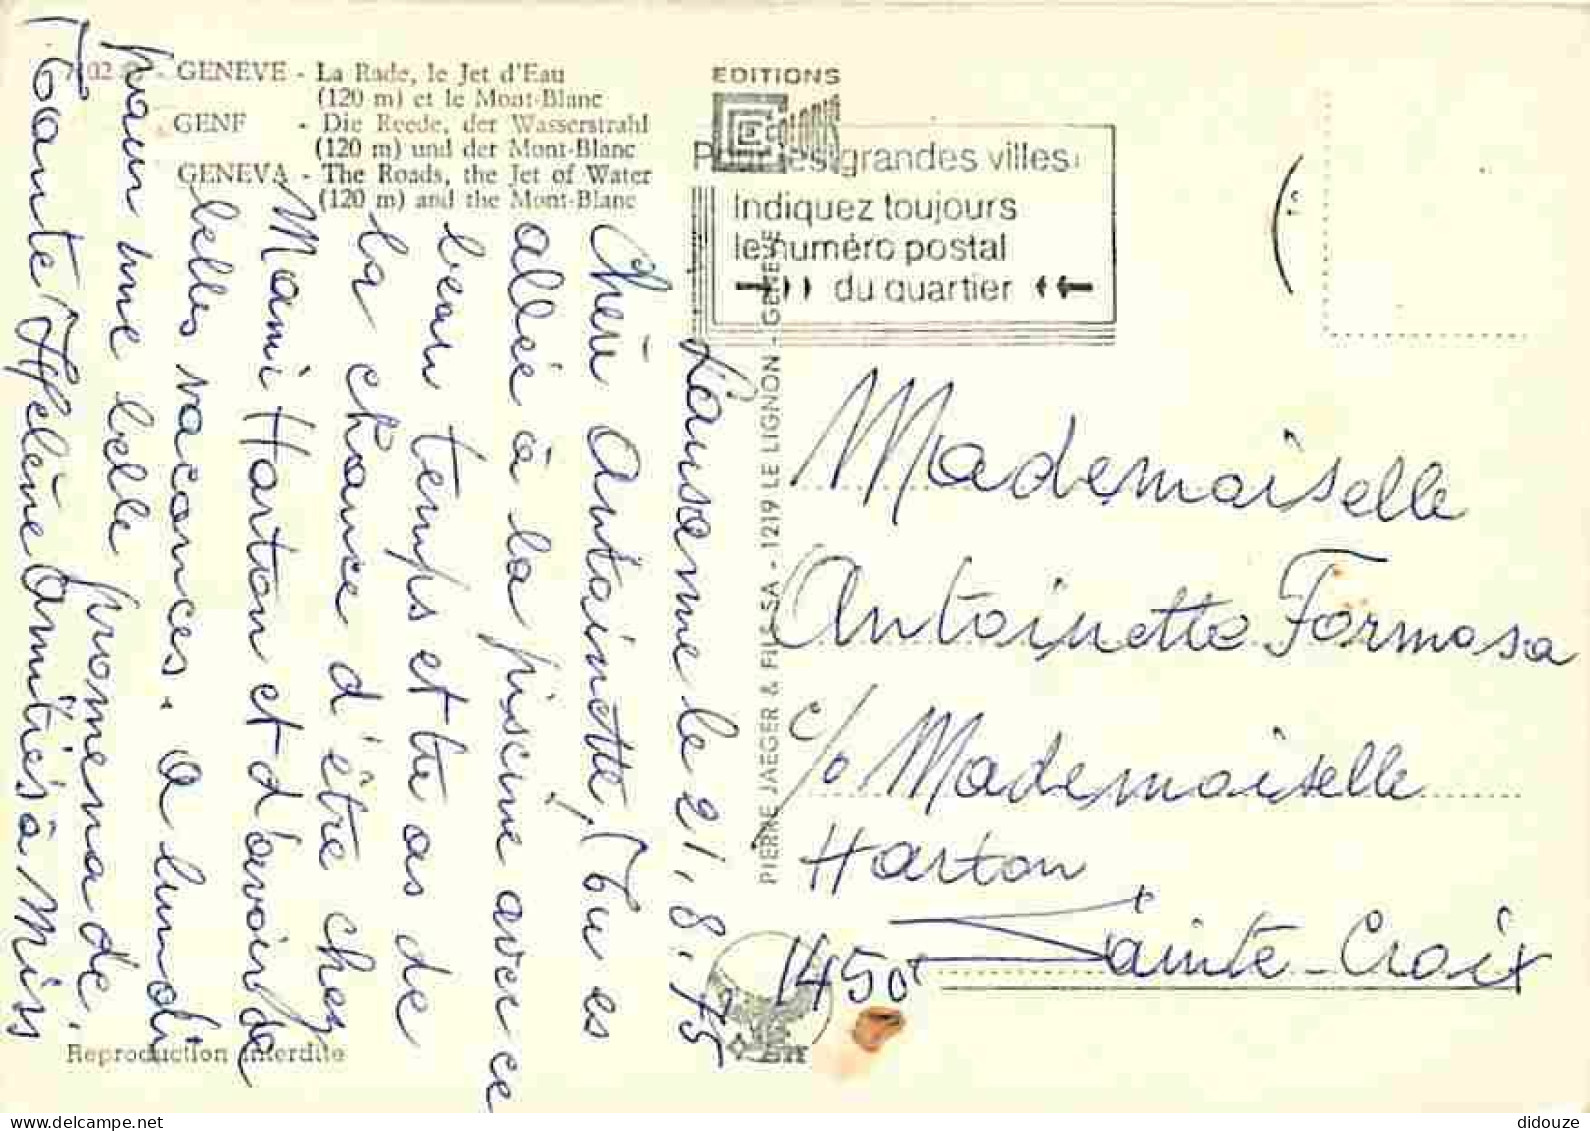 7102 - GENEVE - La Rade, le Jet d'Eau
(120 m) et le Mont-Blanc
GENF - Die Reede, der Wasserstrahl
(120 m) und der Mont-Blanc
GENEVA - The Roads, the Jet of Water
(120 m) and the Mont-Blanc
Lausanne le 21.8.75
Chère Antoinette, Tu es
allée à la piscine avec ce
beau temps et tu as de
la chance d'être chez
Mami Harton et d'avoir de
belles vacances. A lundi
pour une belle promenade.
Tante Hélène Amitiés à Miss
Reproduction interdite
EDITIONS
COLORIS
les grandes villes
Indiquez toujours
le numéro postal
du quartier
PIERRE JAEGER & FILS SA - 1219 LE LIGNON - GENEVE
Mademoiselle
Antoinette Formosa
c/o Mademoiselle
Harton
1450 Sainte-Croix
didouze